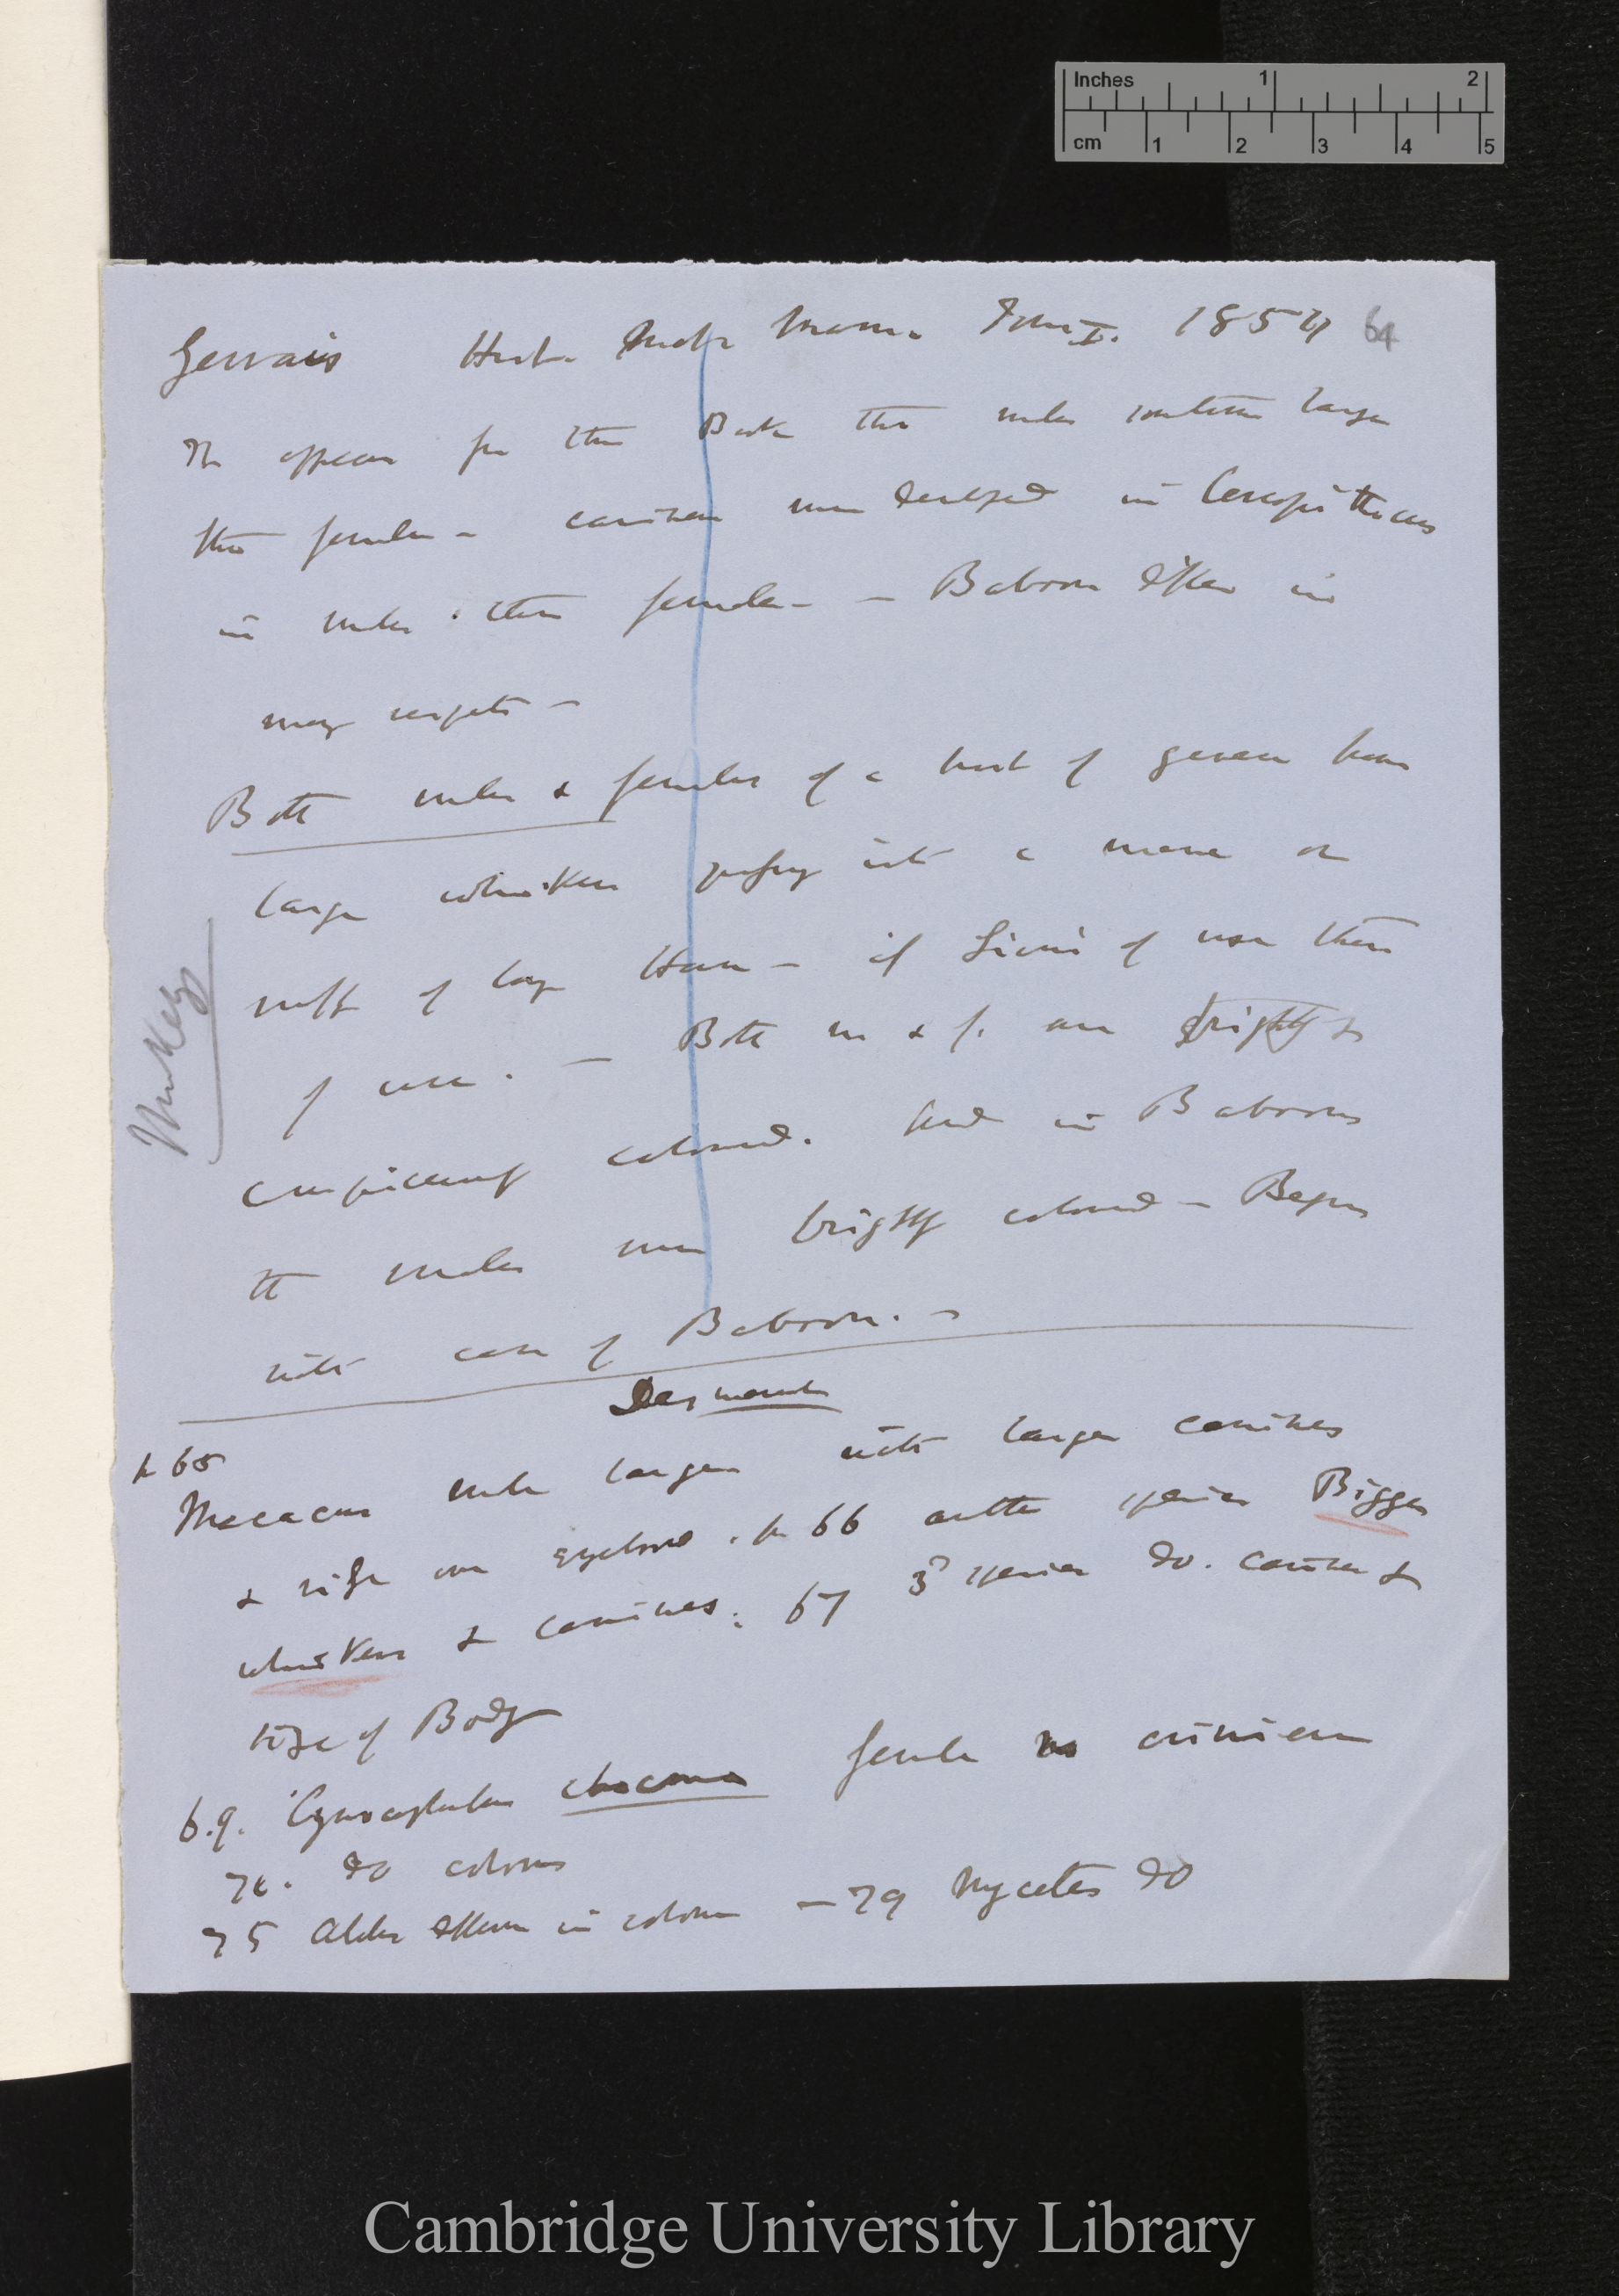 Inches 1 2
cm 1 2 3 4 5
Gervais Hist. Nat. Mamm. Tom I. 1854 64
It appears from this Book that males sometimes larger
than females – canines more developed in Cercopithecus
in males than females – – Baboon differ in
many respects –
Both males & females of a host of genera have
large whiskers passing into a mane or
ruff of long Hair – if Lion's of use then
of use. – Both m & f. are brightly &
conspicuously coloured. And in Baboons
the males more brightly coloured – Begin
with case of Baboon. –
Monkeys
Desmarest
p 65
Macacus male larger with larger canines
& ridge over eyebrow. p. 66 another species Bigger
whiskers & canines: 67 3d species do. canines &
size of Body
69. Cynocephalus chacma female no crinière
70. do colours
75 Alder differ in colour – 79 Mycetes do
Cambridge University Library